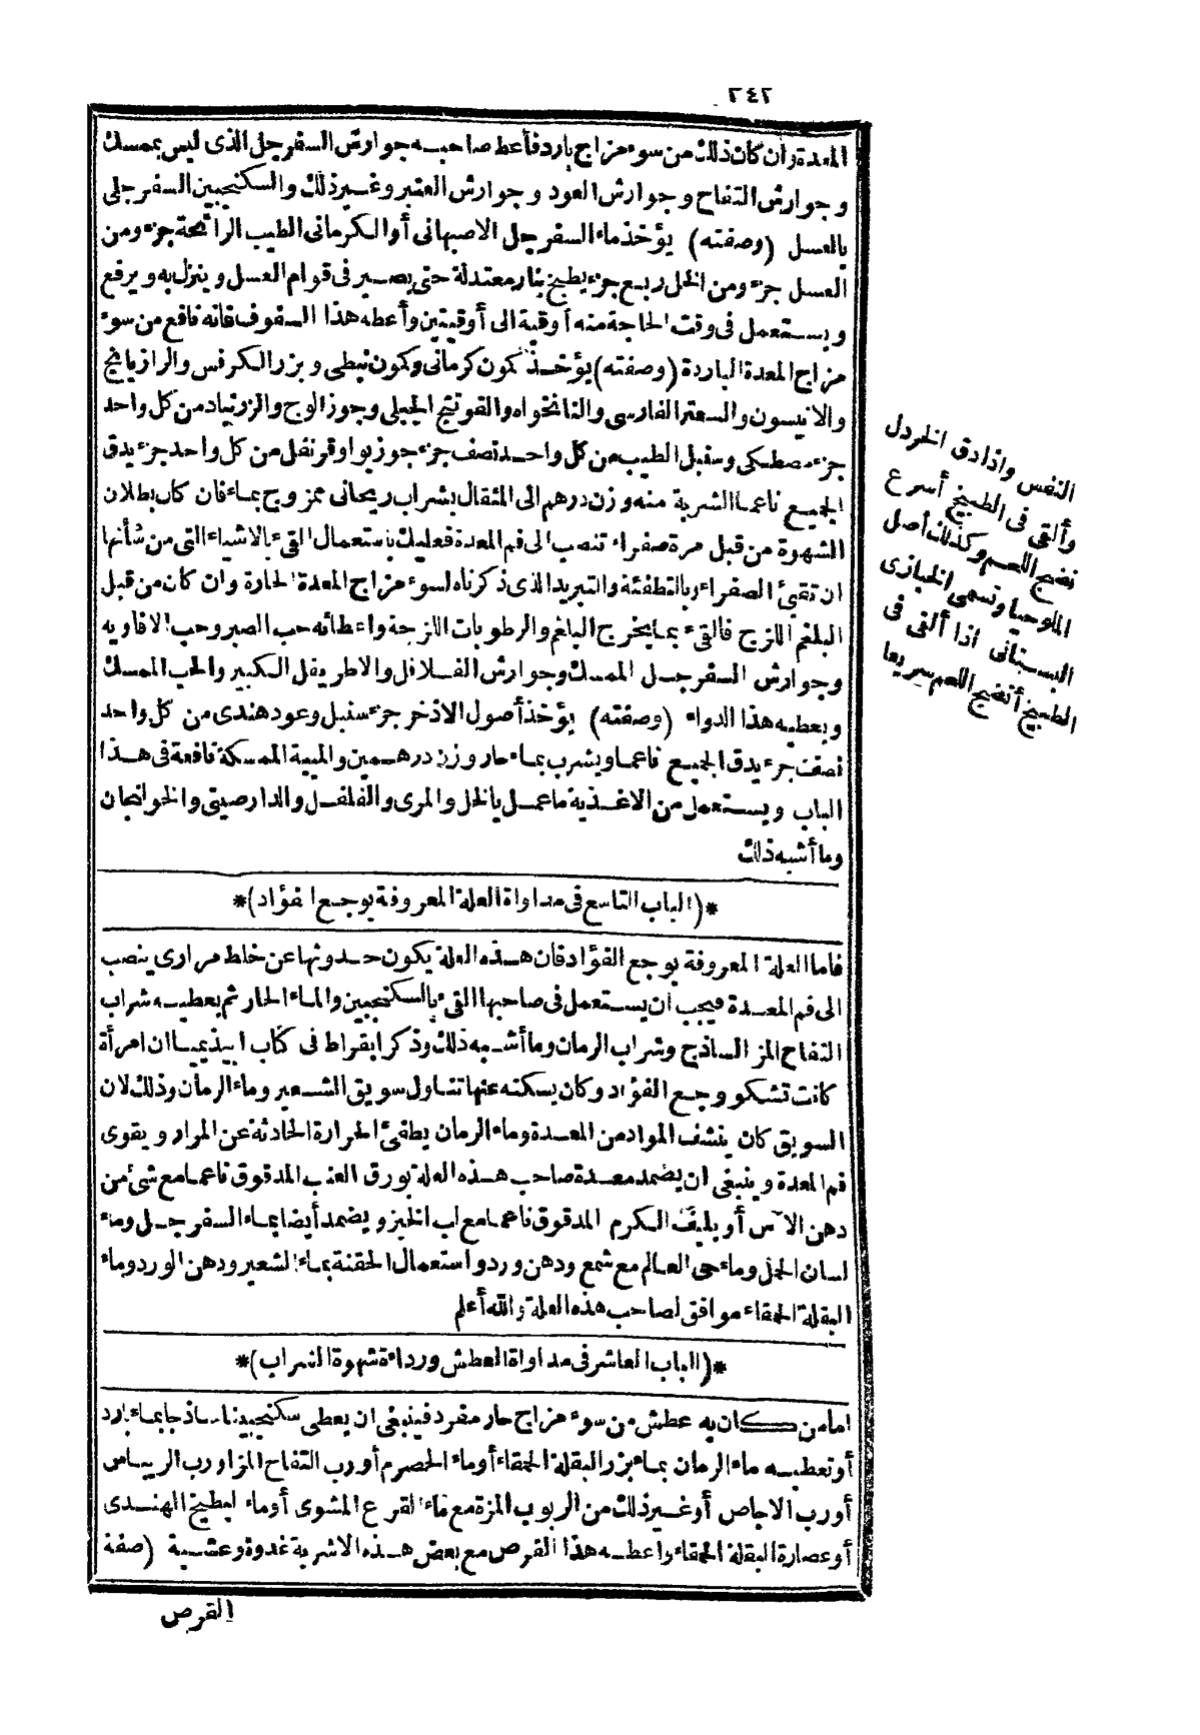 ٢٤٢
المعدة وان كان ذلك من سوء مزاج بارد فأعط صاحبه جوارش السفرجل الذى ليس بممسك
وجوارش التفاح وجوارش العود وجوارش العنبر وغير ذلك والسكنجبين السفرجلى
بالعسل (وصفته) يؤخذ ماء السفرجل الاصبهانى أو الكرمانى الطيب الرائحة جزء ومن
العسل جزء ومن الخل ربع جزء يطبخ بنار معتدلة حتى يصير فى قوام العسل وينزل به ويرفع
ويستعمل فى وقت الحاجة منه أوقية الى أوقيتين وأعطه هذا السفوف فانه نافع من سوء
مزاج المعدة الباردة (وصفته) يؤخذ كمون كرمانى وكمون نبطى وبزر الكرفس والرازيانج
والانيسون والسعتر الفارسى والنانخواه والفوتنج الجبلى وجوز الوج والزرنباد من كل واحد
جزء مصطكى وسنبل الطيب من كل واحد نصف جزء جوزبوا وقرنفل من كل واحد جزء يدق
الجميع ناعما الشربة منه وزن درهم الى المثقال بشراب ريحانى ممزوج بماء فان كان بطلان
الشهوة من قبل مرة صفراء تنصب الى فم المعدة فعليك باستعمال القىء بالاشياء التى من شأنها
ان تقيئ الصفراء وبالتطفئة والتبريد الذى ذكرناه لسوء مزاج المعدة الحارة وان كان من قبل
البلغم اللزج فالقىء بما يخرج البلغم والرطوبات اللزجة واعطائه حب الصبر وحب الافاويه
وجوارش السفرجل الممسك وجوارش الفلافل والاطريفل الكبير والحب الممسك
ويعطيه هذا الدواء (وصفته) يؤخذ أصول الاذخر جزء سنبل وعود هندى من كل واحد
نصف جزء يدق الجميع ناعما ويشرب بماء حار وزن درهمين والميبة الممسكة نافعة فى هذا
الباب ويستعمل من الاغذية ما عمل بالخل والمرى والفلفل والدارصينى والخولنجان
وما أشبه ذلك
*(الباب التاسع فى مداواة العلة المعروفة بوجع الفؤاد)*
فاما العلة المعروفة بوجع الفؤاد فان هذه العلة يكون حدوثها عن خلط مرارى ينصب
الى فم المعدة فيجب ان يستعمل فى صاحبها القىء بالسكنجبين والماء الحار ثم يعطيه شراب
التفاح المز الساذج وشراب الرمان وما أشبه ذلك وذكر ابقراط فى كتاب ابيذيميا ان امرأة
كانت تشكو وجع الفؤاد وكان يسكنه عنها تناول سويق الشعير وماء الرمان وذلك لان
السويق كان ينشف المواد من المعدة وماء الرمان يطفئ الحرارة الحادثة عن المرار ويقوى
فم المعدة وينبغى ان يضمد معدة صاحب هذه العلة بورق العنب المدقوق ناعما مع شئ من
دهن الآس أو بليف الكرم المدقوق ناعما مع لب الخبز ويضمد أيضا بماء السفرجل وماء
لسان الحمل وماء حى العالم مع شمع ودهن ورد واستعمال الحقنة بماء الشعير ودهن الورد وماء
البقلة الحمقاء موافق لصاحب هذه العلة والله أعلم
*(الباب العاشر فى مداواة العطش ورداءة شهوة الشراب)*
اما من كان به عطش من سوء مزاج حار مفرد فينبغى ان يعطى سكنجبينا ساذجا بماء بارد
أو تعطيه ماء الرمان بماء بزر البقلة الحمقاء أو ماء الحصرم أو رب التفاح المز او رب الريباس
أو رب الاجاص أو غير ذلك من الربوب المزة مع ماء القرع المشوى أو ماء البطيخ الهندى
أو عصارة البقلة الحمقاء واعطه هذا القرص مع بعض هذه الاشربة غدوة وعشية (صفة
القرص
النفس واذا دق الخردل
وألقى فى الطبيخ أسرع
نضج اللحم وكذلك أصل
الملوحيا وتسمى الخبازى
البستانى اذا ألقى فى
الطبيخ أنضج اللحم سريعا